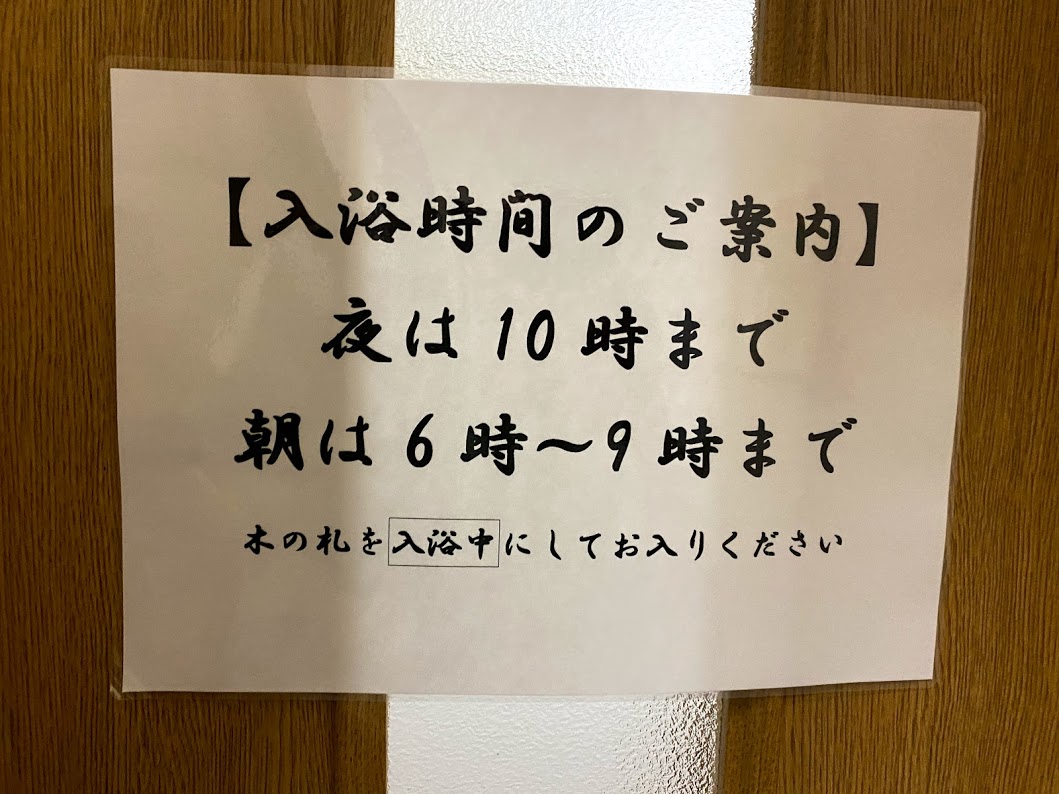 【入浴時間のご案内】
夜は10時まで
朝は6時〜9時まで
木の札を入浴中にしてお入りください